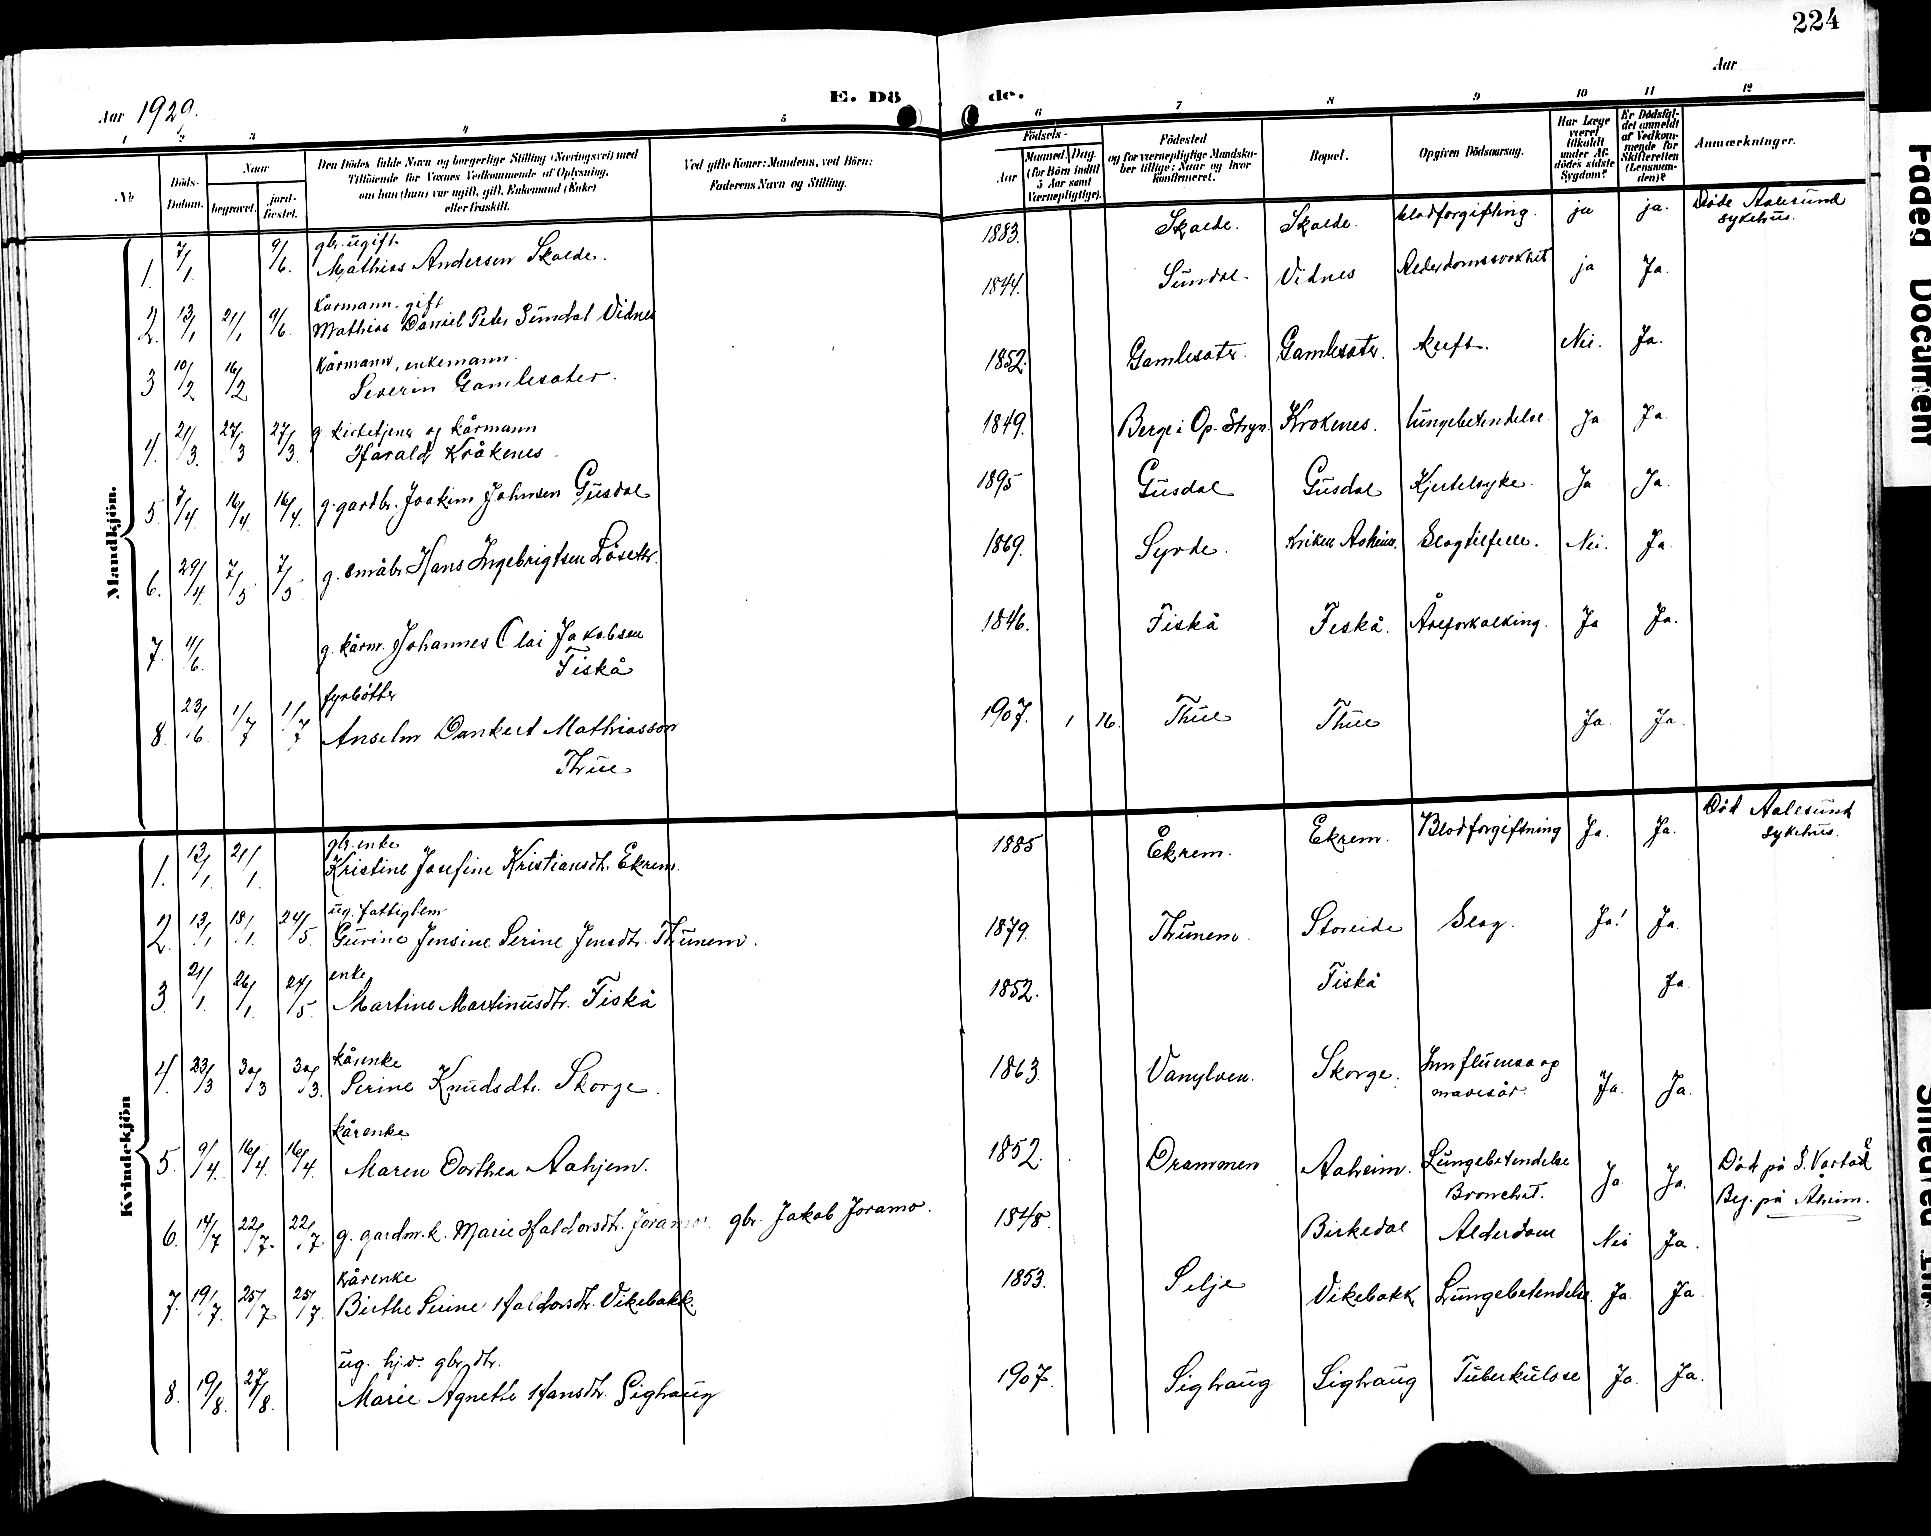 224
Aar 1929.
E. Dö de.
Aar
1 2 3 4 5 6 7 8 9 10 11 12
No
Döds-Datum.
Naar
begravet.
jord-fæstet.
Den Dödes fulde Navn og borgerlige Stilling (Næringsvei) med
Tilföiende for Voxnes Vedkommende af Oplysning,
om han (hun) var ugift, gift, Enkemand (Enke)
eller fraskilt.
Ved gifte Koner: Mandens, ved Börn:
Faderens Navn og Stilling.
Födsels-
Aar
Maaned. Dag.
(for Börn indtil
5 Aar samt
Værnepligtige).
Födested
og for værnepligtige Mandska-
ber tillige: Naar og hvor
konfirmeret.
Bopæl.
Opgiven Dödsaarsag.
Har Læge
været
tilkaldt
under Af-
dödes sidste
Sygdom?
Er Dödsfal-
det anmeldt
af Vedkom-
mende for
Skifteretten
(Lensman-
den)?
Anmærkninger.
Mandkjön.
gbr. ugift.
1. 7/1 9/6. Mathias Andersen Skaide. 1883. Skaide. Skaide. blodforgiftning. ja ja. Döde Aalesund
sykehus.
kårmann. gift
2. 13/1 21/1 9/6. Mathias Daniel Peter Sundal Vidnes 1844. Sundal Vidnes Alderdomssvakhet ja Ja.
kårmann, enkemann.
3 10/2 16/2 Severin Gamlesæter. 1852. Gamlesæter. Gamlesæter. kreft. Nei. Ja.
g kirketjener og kårmann
4. 21/3. 27/3 27/3. Harald Kråkenes 1849. Berge i Op. Stryn. Krokenes. lungebetendelse Ja Ja
5. 7/4 16/4. 16/4. g. gardbr. Joakim Johnsen Gusdal 1895 Gusdal Gusdal Kjertelsyke. Ja Ja.
6. 29/4. 7/5 7/5 g. småbr Hans Ingebrigtsen Löseth. 1869. Syvde. Kriken Aaheim. Slagtilfelle. Nei. Ja
7. 11/6. g. kårm. Johannes Olai Jakobsen
Fiskå 1846. Fiskå Feskå. Åreforkalking. Ja Ja.
fyrböter
8. 23/6. 1/7 1/7 Anselm Dankert Mathiasson
Thue 1907. 1 16. Thue Thue Ja. Ja.
Kvindekjön
gbr. enke
1. 13/1. 21/1. Kristine Josefine Kristiansdtr. Ekrem. 1885 Ekrem. Ekrem. Blodforgiftning Ja. Ja. Död Aalesund
sykehus.
ug. fattiglem
2. 13/1 18/1. 24/5. Gurine Jensine Serine Jensdtr. Thunem. 1879. Thunem. Storeide Slag. Ja! Ja.
enke
3. 21/1. 26/1. 24/5. Martine Martinusdtr. Fiskå 1852. Fiskå Ja.
kårenke
4. 23/3 30/3 30/3. Serine Knudsdtr. Skorge. 1863. Vanylven. Skorge. Innfluensa og
mavesår. Ja. Ja.
kårenke
5. 9/4. 16/4. 16/4. Maren Dorthea Aahjem. 1852. Drammen Aaheim. Lungebetendelse
Bronchit. Ja. Ja. Död på S. Vartdal
Beg. på Åheim.
6. 14/7 22/7. 22/7. g. gardm. k. Marie Haldorsdtr. Joramo. gbr. Jakob Joramo. 1848. Birkedal Alderdom Nei Ja.
kårenke
7. 19/7. 25/7 25/7 Birthe Serine Haldorsdtr. Vikebakk. 1853. Selje Vikebakk Lungebetendelse. Ja. Ja
ug. hj.v. gbr. dtr.
8. 19/8. 27/8. Marie Agnethe Hansdtr. Sighaug 1907. Sighaug Sighaug Tuberkulose Ja. Ja.
Faded Document
Smeared Ink